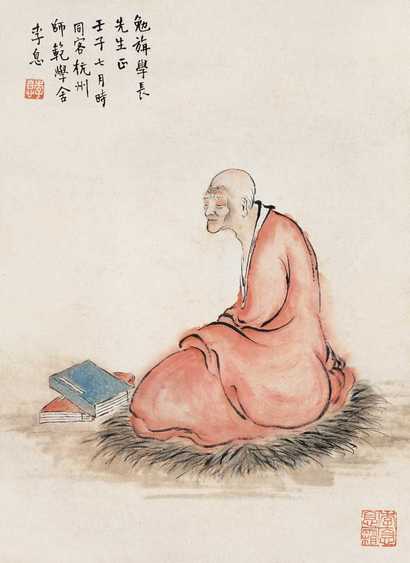 勉旃學長
先生正
壬子七月時
同客杭州
師範學舍
李息